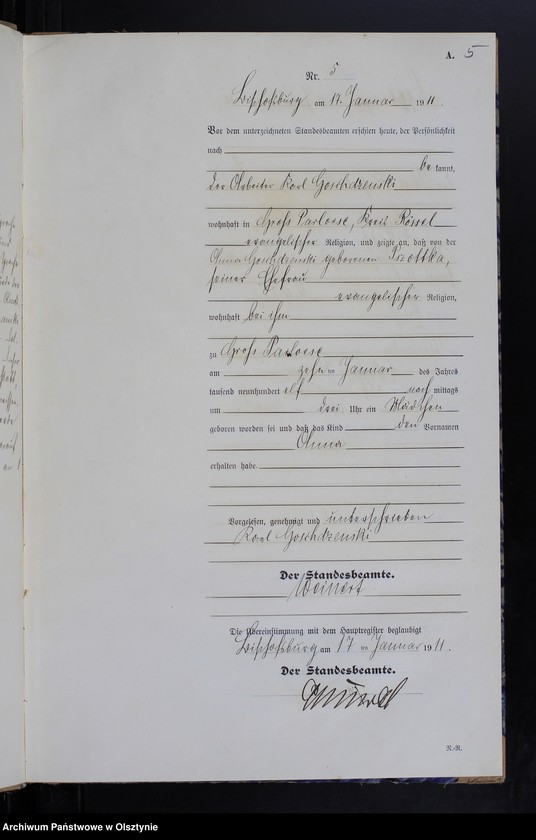 A. 5
Nr. 5
Bischofsburg am 17. Januar 1911.
Vor dem unterzeichneten Standesbeamten erschien heute, der Persönlichkeit
nach
be kannt,
der Arbeiter Karl Goschdzenski
wohnhaft in Groß Parleese, Kreis Rössel
evangelischer Religion, und zeigte an, daß von der
Anna Goschdzenski geborenen Przottka,
seiner Ehefrau
evangelischer Religion,
wohnhaft bei ihm
zu Groß Parleese
am zehn ten Januar des Jahres
tausend neunhundert elf nach mittags
um drei Uhr ein Mädchen
geboren worden sei und daß das Kind den Vornamen
Anna
erhalten habe.
Vorgelesen, genehmigt und unterschrieben
Karl Goschdzenski
Der Standesbeamte.
Weinert
Die Übereinstimmung mit dem Hauptregister beglaubigt
Bischofsburg am 17 ten Januar 1911.
Der Standesbeamte.
R.-R.
Archiwum Państwowe w Olsztynie